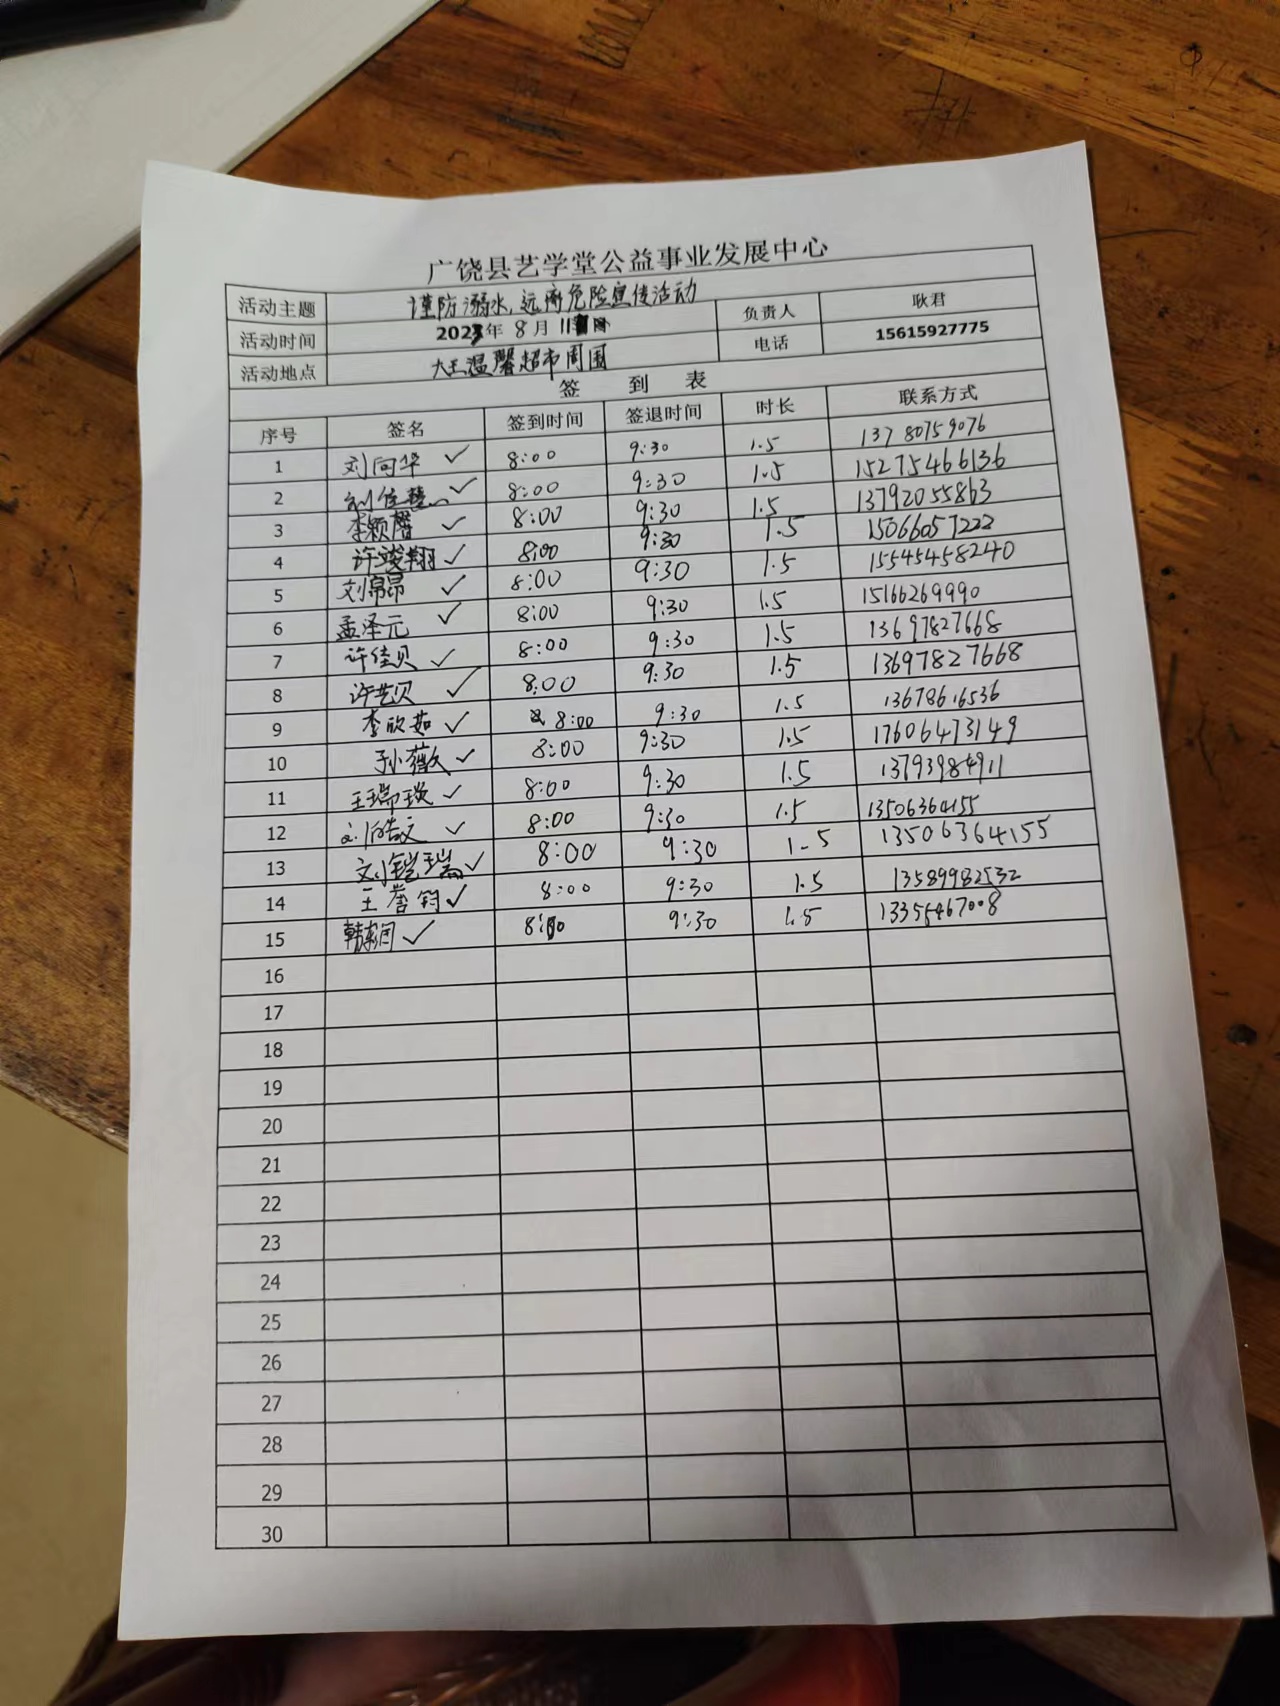 广饶县艺学堂公益事业发展中心
活动主题 谨防溺水,远离危险宣传活动 负责人 耿君
活动时间 2023年8月11日 电话 15615927775
活动地点 大王温馨超市周围
签 到 表
序号 签名 签到时间 签退时间 时长 联系方式
1 刘向华 ✓ 8:00 9:30 1.5 13780759076
2 刘佳慧 ✓ 8:00 9:30 1.5 15275466136
3 李颖馨 ✓ 8:00 9:30 1.5 13792055863
4 许竣翔 ✓ 8:00 9:30 1.5 15066057222
5 刘帛昂 ✓ 8:00 9:30 1.5 15545458240
6 孟泽元 ✓ 8:00 9:30 1.5 15166269990
7 许佳贝 ✓ 8:00 9:30 1.5 13697827668
8 许艺贝 ✓ 8:00 9:30 1.5 13697827668
9 李欣茹 ✓ 8:00 9:30 1.5 13678616536
10 孙薇 ✓ 8:00 9:30 1.5 17606473149
11 王瑞琰 ✓ 8:00 9:30 1.5 13793984911
12 刘皓文 ✓ 8:00 9:30 1.5 13506364155
13 刘铠瑞 ✓ 8:00 9:30 1.5 13506364155
14 王誉钧 ✓ 8:00 9:30 1.5 13589982532
15 韩 ✓ 8:00 9:30 1.5 13355467008
16
17
18
19
20
21
22
23
24
25
26
27
28
29
30